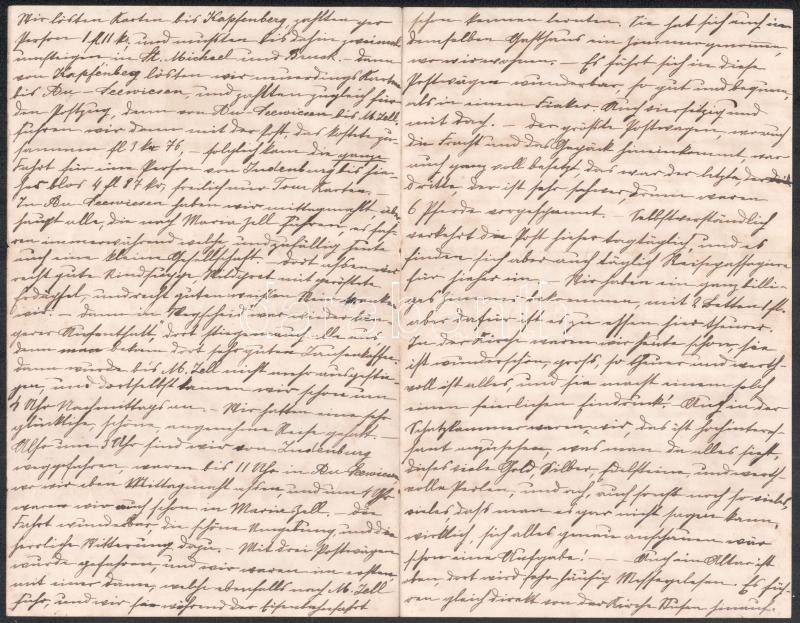 Wir lösten Karten bis Kapfenberg, zahlten per
Person 1 fl 11 kr. und mußten bis dahin zweimal
umsteigen in St. Michael und Bruck. – dann
von Kapfenberg lösten wir neuerdings Karten
bis Au-Seewiesen, und zahlten zugleich für
den Postzug, denn von Au-Seewiesen bis M. Zell
fuhren wir dann mit der Post, das kostete zu-
sammen fl 3 kr 76, – folglich kam die ganze
Fahrt für eine Person von Judenburg bis hie-
her blos 4 fl 87 kr, freilich nur Tour Karten. –
In Au-Seewiesen haben wir mittaggemacht, über
haupt alle, die nach Maria Zell fuhren, es fuh
ren immerwährend welche, und zufällig heute
auch eine kleine Gesellschaft. – dort aßen wir
recht gute Rindsuppe Wildpret mit geröstete
Erdäpfel, und recht guten Wein
wir. – dann in Wegscheid war wieder län-
gerer Aufenthalt, dort stiegen auch alle aus,
denn man bekam dort sehr guten Jausenkaffee,
dann wurde bis M. Zell nicht mehr ausgestie-
gen, und dortselbst kamen wir schon um
4 Uhr Nachmittags an. – Wir hatten eine sehr
glückliche, schöne, angenehme Reise gehabt. –
Also um 5 Uhr sind wir von Judenburg
weggefahren, waren bis 11 Uhr in Au Seewiesen,
wo wir eben Mittagmacht, und um 4 Uhr
waren wir auch schon in Maria Zell. – die
Fahrt wunderbar, die schöne Umgebung, und die
herrliche Witterung dazu. – Mit drei Postwägen
wurde gefahren, und wir waren im ersten,
mit einer Dame, welche ebenfalls nach M. Zell
fuhr, und wir sie während der Eisenbahnfahrt
schon kennen lernten. Sie hat sich auch in
demselben Gasthaus ein Zimmer genommen,
wo wir wohnen. – Es fährt sich in diese
Postwägen wunderbar, so gut und bequem,
als in einem Fiaker. Auch viersitzig und
mit Dach. – der größte Postwagen, worauf
die Fracht und das Gepäck hineinkommt, war
auch ganz voll besetzt, das war der letzte, der
dritte, der ist sehr schwer, daran waren
6 Pferde vorgespannt. – Selbstverständlich
verkehrt die Post hieher tagtäglich, und es
finden sich aber auch täglich Reisepassagiere
für hieher ein. – Wir haben ein ganz billi-
ges Zimmer bekommen, mit 2 Betten 1 fl.
aber dafür ist etzn essen hier theurer.
In der Kirche waren wir heute schon, sie
ist wunderschön, groß, so theuer und werth-
voll ist alles, und sie macht einem solch
einen feierlichen Eindruck! Auch in der
Schatzkammer waren wir, das ist hochinteres-
sant anzusehen, was man da alles sieht,
dieses viele Gold, Silber, Edelsteine, und werth-
volle Perlen, und ach, auch sonst noch so vieles
vieles daß man es gar nicht sagen kann,
wirklich, sich alles genau anschauen wär
schon eine Aufgabe! – Auch im Altar ist
oben, dort wird sehr häufig Messegelesen. Es füh-
ren gleich direkt von der Kirche Stufen hinauf.
darabanth